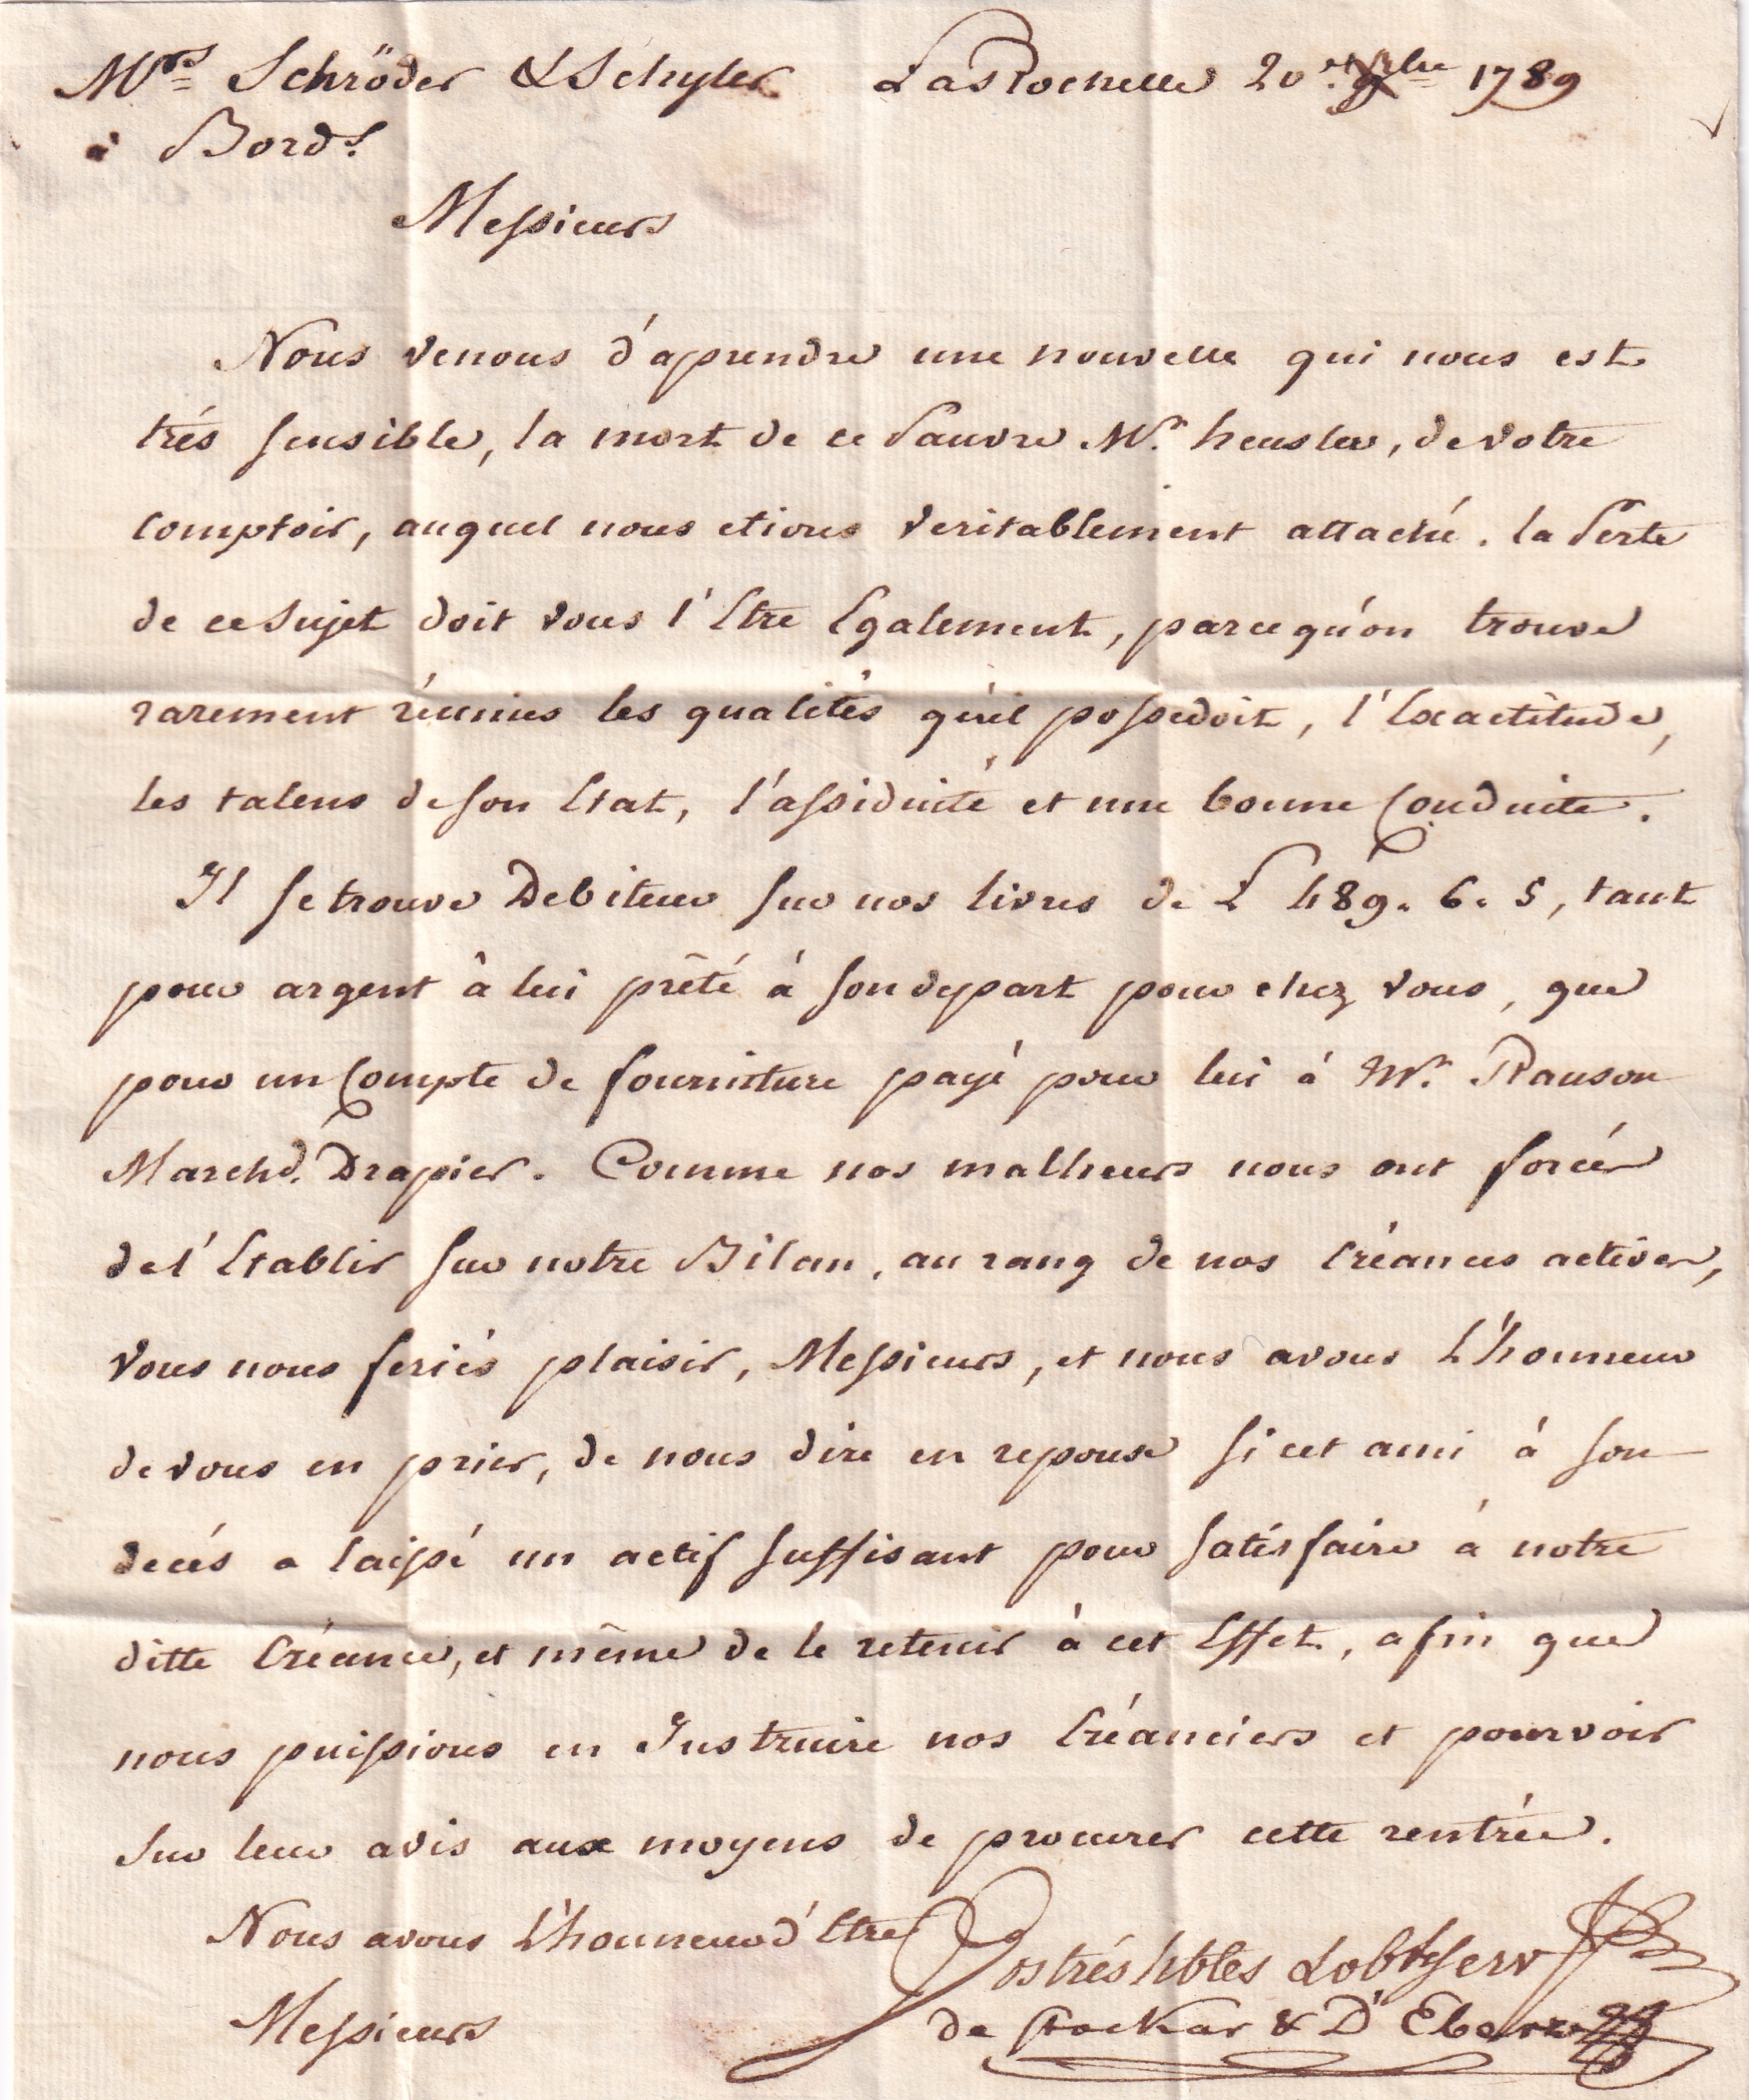 Mrs Schröder & Schyler La Rochelle 20. 1789
à Bord.x
Messieurs
Nous venons d'aprendre une nouvelle qui nous est
trés sensible, la mort de ce Pauvre Mr. heusler, de votre
Comptoir, auquel nous etions veritablement attaché. la Perte
de ce Sujet doit vous l'Etre Egalement, parcequ'on trouve
rarement réunies les qualités qu'il possedoit, l'Exactitude,
les talens de son Etat, l'assiduité et une bonne Conduite.
Il se trouve Debiteur sur nos livres de L 489. 6. 5, tant
pour argent à lui prêté à son depart pour chez vous, que
pour un Compte de fourniture payé pour lui à Mr. Ranson
Marchd. Drapier. Comme nos malheurs nous ont forcés
de l'Etablir sur notre Bilan, au rang de nos Créances actives,
Vous nous feriés plaisir, Messieurs, et nous avons L'honneur
de vous en prier, de nous dire en reponse si cet ami à son
decés a laissé un actif suffisant pour satisfaire à notre
ditte Créance, et même de le retenir à cet Effet, afin que
nous puissions en Instruire nos Créanciers et pourvoir
sur leur avis aux moyens de procurer cette rentrée.
Nous avons L'honneur d'Etre
Vos trés hbles & obts Serv
Messieurs
de Stockar & D'Eberz